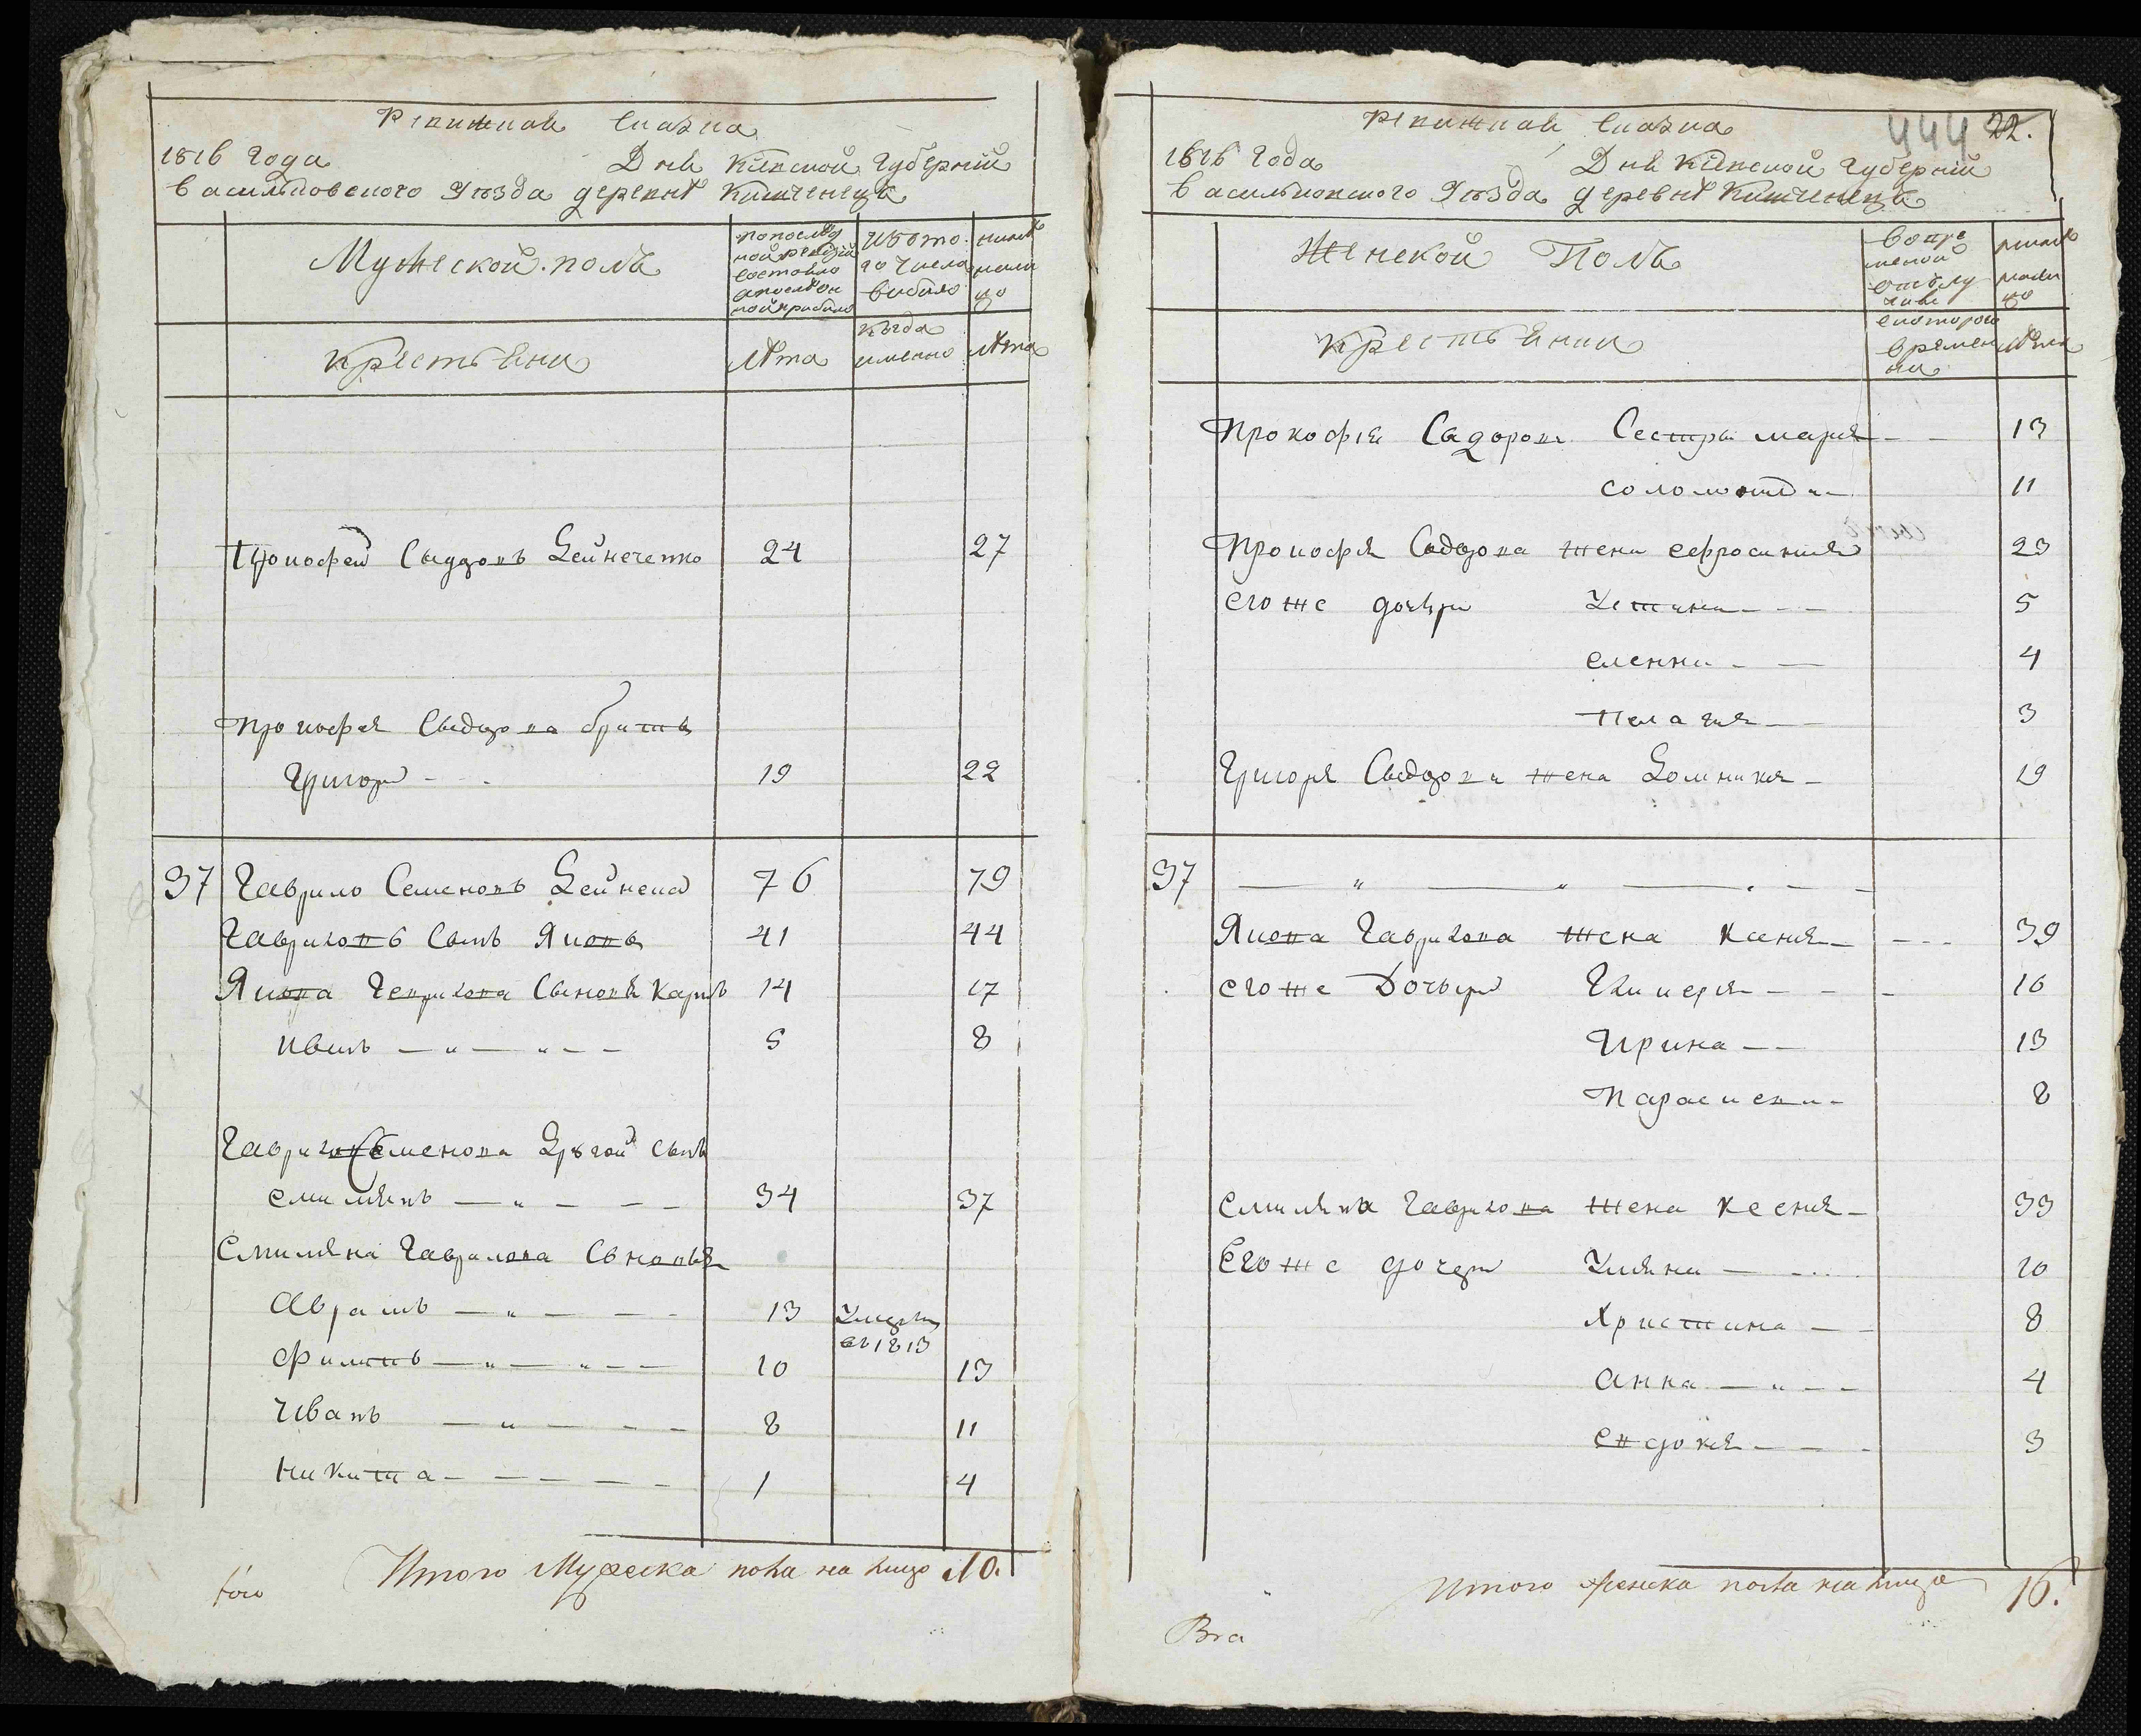 Ревижная Сказка
1816 Года Дня Кіевской Губерній
Васильковского Уезда деревне
Мужеской полъ
по послед
ней ревизій
состояло
а после он
ой прибыло
изъ то
го числа
выбыло
ныне
нали
цо
Крестьяни
Лета
когда
именно
Лета
Прокофей Сыдоровъ Дейнеченко 24 27
Прокофея Сыдорова братъ
Григорій 19 22
37 Гаврило Семеновъ Дейнека 76 79
Гавриловъ Сынъ Яковъ 41 44
Якова Гаврилова Сыновя Карпъ 14 17
Иванъ 5 8
Гаврила Семенова Другой сынъ
Емилянъ 34 37
Емиляна Гаврилова Сыновья
Аврамъ 13 Умеръ
въ 1813
Филипъ 10 13
Иванъ 8 11
Никита 1 4
Итого Мужеска пола на лицо 10.
Ревижная Сказка
444 22.
1816 Года Дня Кіевской Губерній
Васильковского Уезда деревне
Женской Полъ
во вре
меной
отлу
ныне
нали
цо
Крестьянки
с которого
времен
ни
Лета
Прокофія Сидорова Сестры Мария 13
Соломонида 11
Прокофя Сидорова жена Ефросиния 23
Его же дочери Устина 5
Еленна 4
Пелагия 3
Григоря Сыдорова жена Домникия 19
37
Якова Гаврилова жена Ксения 39
Его же Дочери Гликерия 16
Ирина 13
Парасковия 8
Емиляна Гаврилова жена Ксения 33
Его же дочери Уляна 10
Христина 8
Анна 4
Евдокия 3
Итого женска пола на лицо 16.